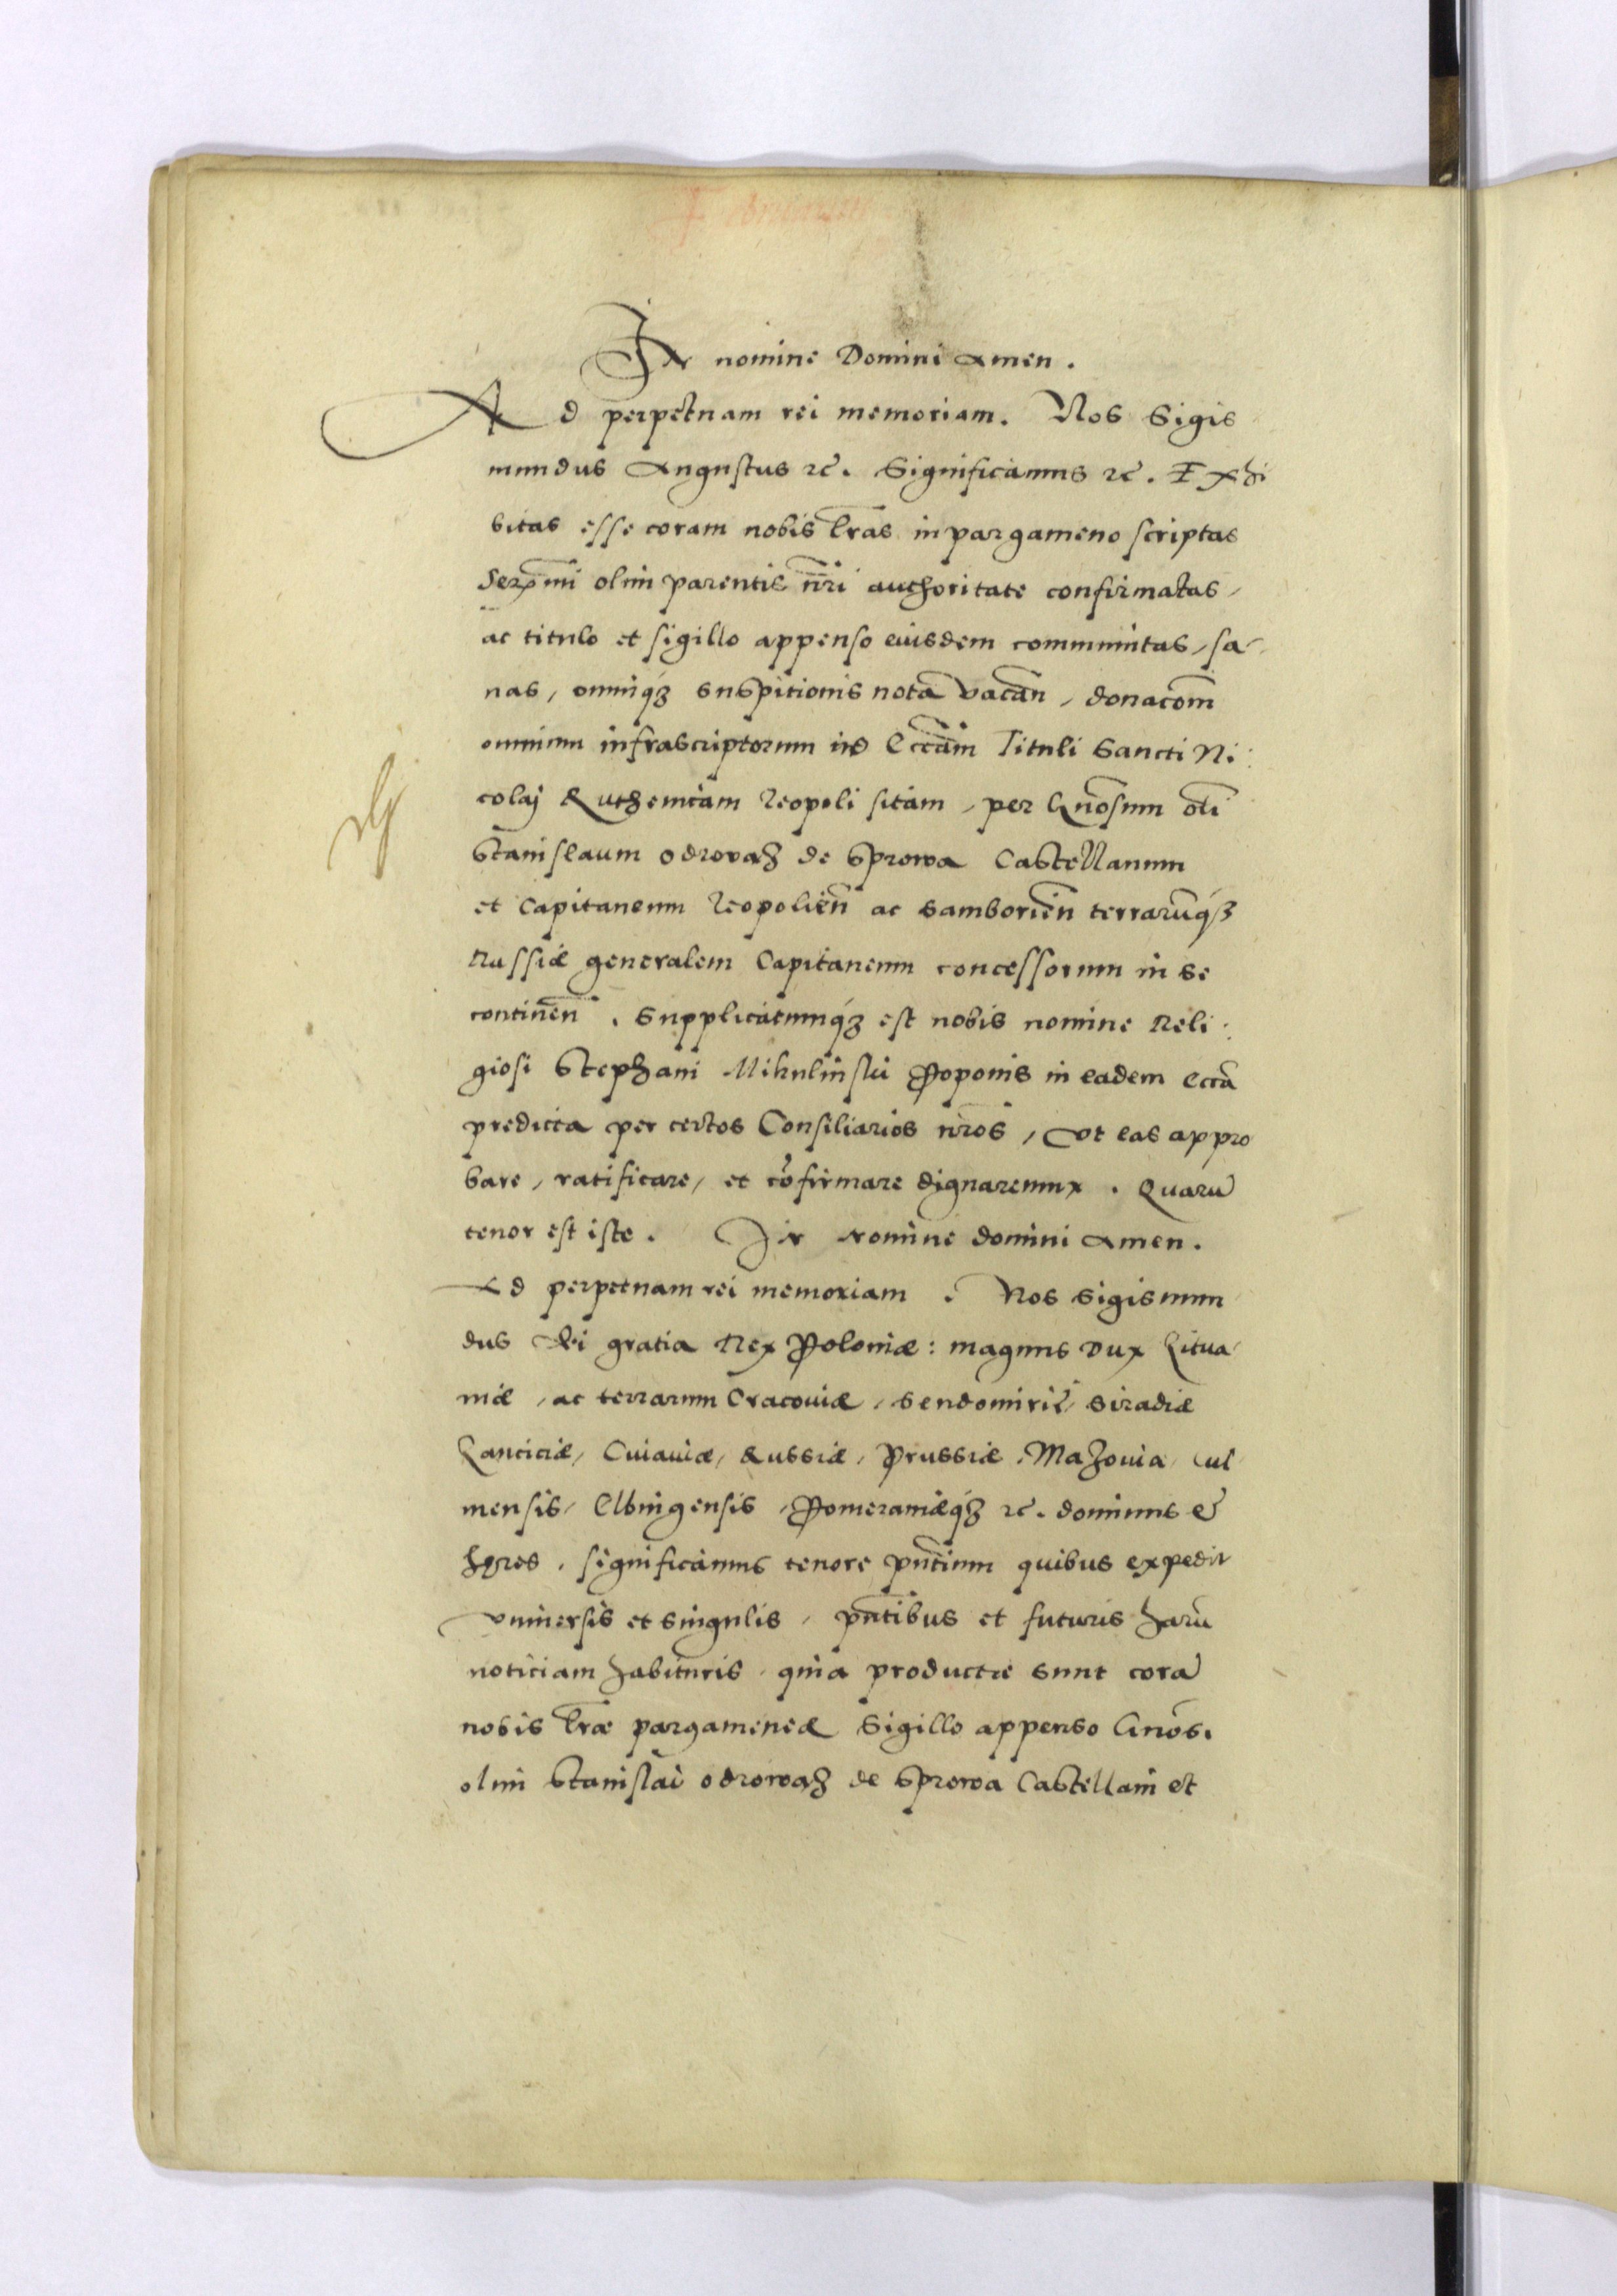 In nomine Domini Amen.
Ad perpetuam rei memoriam. Nos Sigis
mundus Augustus etc. Significamus etc. Exhi
bitas esse coram nobis l̃ras in pargameno scriptas
Serχ̃mi olim parentis ñri authoritate confirmatas,
ac titulo et sigillo appenso eiusdem communitas, sa-
nas, omniq́ʒ suspitionis nota vacañ, donacõm
omnium infrascriptorum in Ecc̃am Tituli Sancti Ni:
colaj Ruthenicam Leopoli sitam, per Gñosum oli̅
Stanislaum Odrovaʒ de Sprowa Castellanum
et Capitaneum Leopolieñ ac Samborieñ terrarũq́ʒ
Russiæ generalem Capitaneum concessorum in se
contineñ. Supplicatumq́ʒ est nobis nomine Reli:
giosi Stephani Mikulinski Poponis in eadem Ecc̃a
predicta per certos Consiliarios ñros, Vt eas appro
bare, ratificare, et cõfirmare dignaremur. Quarũ
tenor est iste. In nomine domini Amen.
Ad perpetuam rei memoriam. Nos Sigismun
dus Dei gratia Rex Poloniæ: magnus Dux Litua-
niæ, ac terrarum Cracoviæ, Sendomirie, Siradiæ
Lanciciæ, Cuiaviæ, Russiæ, Prussiæ, Mazovia, Cul
mensis, Elbingensis, Pomeraniæq́ʒ etc. dominus &
hęres. significamus tenore pñtium quibus expedit
vniversis et singulis, pñtibus et futuris harũ
noticiam habituris, quia productæ sunt corã
nobis l̃ræ pargameneæ Sigillo appenso Gños.
olim Stanislai Odrowaʒ de Sprowa Castellani et